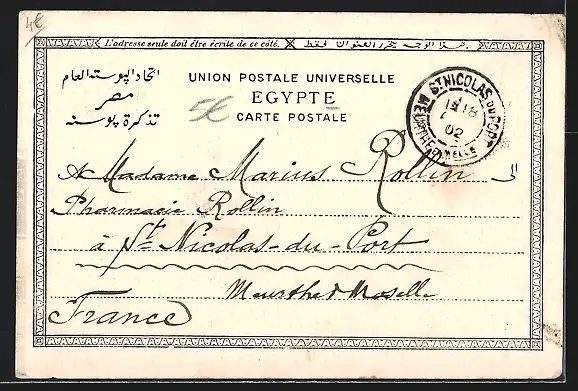 4€
L'adresse seule doit être écrite de ce côté. هذا الوجه يحرر العنوان فقط
اتحاد البوسته العام
مصر
تذكرة بوسته
UNION POSTALE UNIVERSELLE
EGYPTE
CARTE POSTALE
5€
ST NICOLAS DU PORT
18
02
MEURTHE ET MOSELLE
A Madame Marius Rollin الى
Pharmacie Rollin
à St. Nicolas-du-Port
Meurthe & Moselle
France